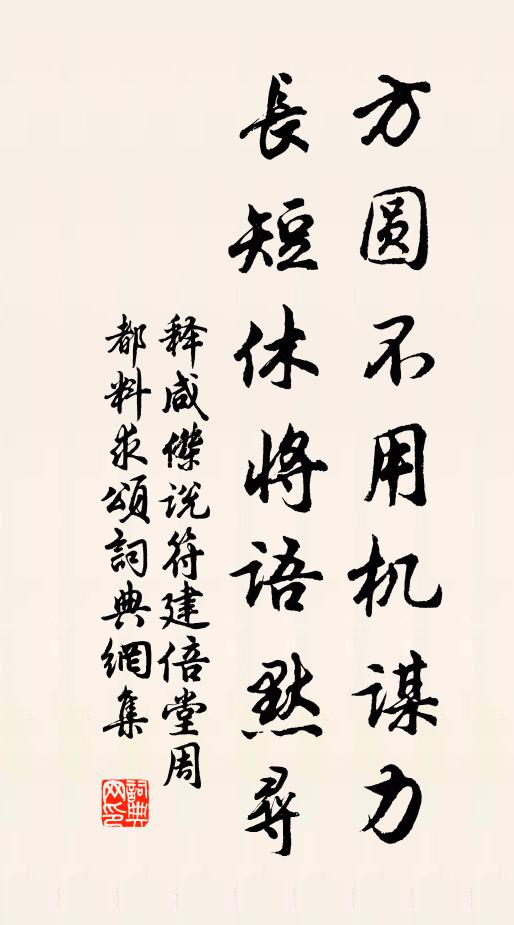 方圆不用机谋力
長短休将语默尋
释咸傑说符建倍堂周
都料求頌詞典網集
詞典网印